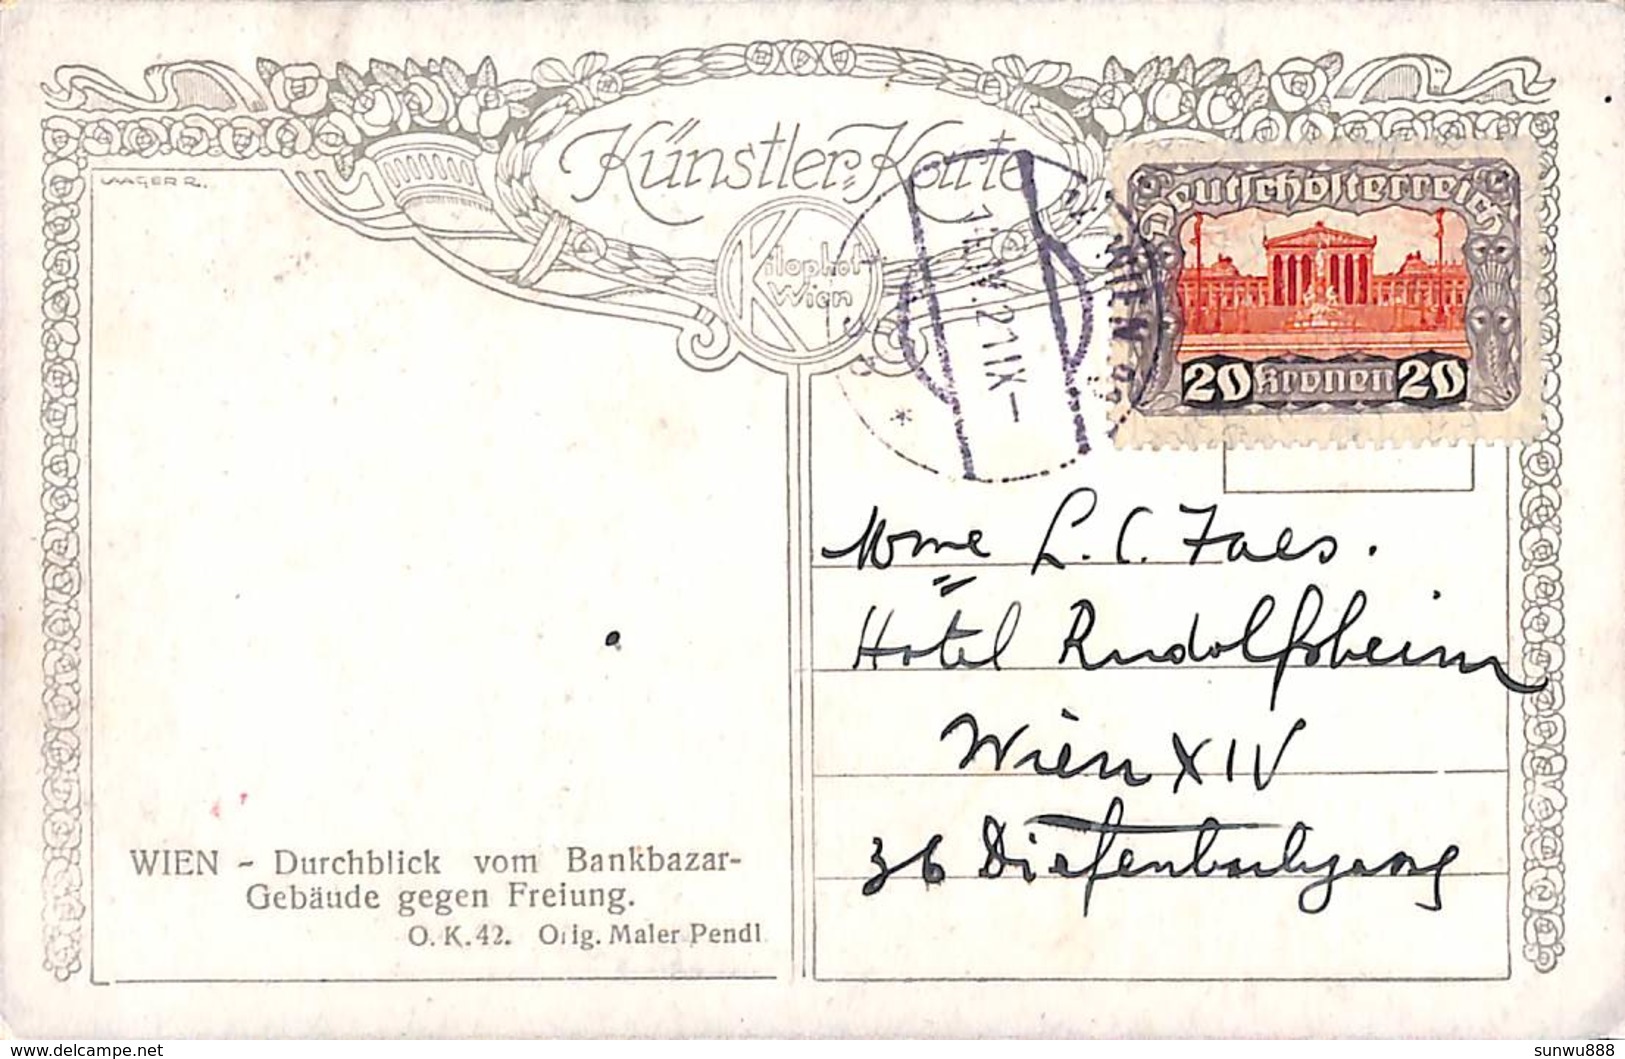 Künstler-Karte
WAGER R.
Kilophot
Wien
Deutschösterreich
20 Kronen 20
WIEN
21 IX –
*
Mme L. C. Faes.
Hotel Rudolfsheim
Wien XIV
36 Diefenbachgasg
WIEN - Durchblick vom Bankbazar-
Gebäude gegen Freiung.
O. K. 42. Orig. Maler Pendl
delcampe.net
sunwu888